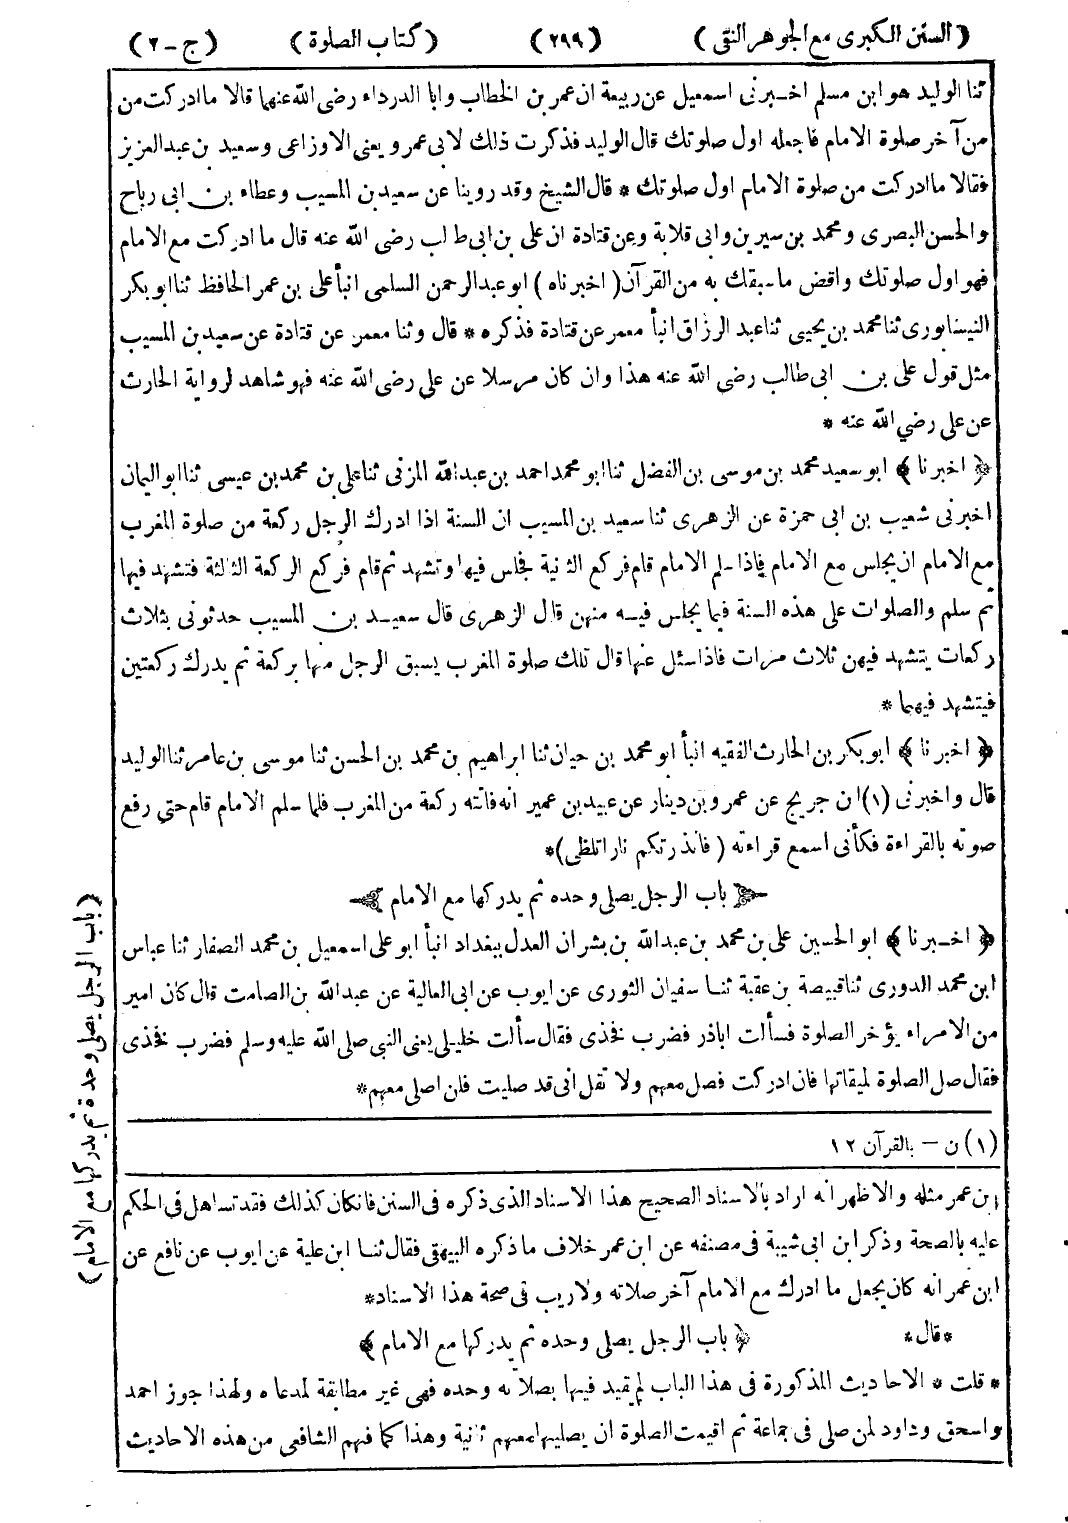 (السنن الكبرى مع الجوهر النقى) (٢٩٩) (كتاب الصلوة) (ج-٢)
ثنا الوليد هو ابن مسلم اخبرنى اسمعيل عن ربيعة ان عمر بن الخطاب وابا الدرداء رضى الله عنهما قالا ما ادركت من
من آخر صلوة الامام فاجعله اول صلوتك قال الوليد فذكرت ذلك لابى عمرو يعنى الاوزاعى وسعيد بن عبدالعزيز
فقالا ما ادركت من صلوة الامام اول صلوتك * قال الشيخ وقد روينا عن سعيد بن المسيب وعطاء بن ابى رباح
والحسن البصرى ومحمد بن سيرين وابى قلابة وعن قتادة ان على بن ابى طالب رضى الله عنه قال ما ادركت مع الامام
فهو اول صلوتك واقض ما سبقك به من القرآن (اخبرناه) ابو عبدالرحمن السلمى انبأ على بن عمر الحافظ ثنا ابو بكر
النيسابورى ثنا محمد بن يحيى ثنا عبد الرزاق انبأ معمر عن قتادة فذكره * قال وثنا معمر عن قتادة عن سعيد بن المسيب
مثل قول على بن ابى طالب رضى الله عنه هذا وان كان مرسلا عن على رضى الله عنه فهو شاهد لرواية الحارث
عن على رضي الله عنه *
﴿اخبرنا﴾ ابو سعيد محمد بن موسى بن الفضل ثنا ابو محمد احمد بن عبدالله المزنى ثنا على بن محمد بن عيسى ثنا ابو اليمان
اخبرنى شعيب بن ابى حمزة عن الزهرى ثنا سعيد بن المسيب ان السنة اذا ادرك الرجل ركعة من صلوة المغرب
مع الامام ان يجلس مع الامام فاذا سلم الامام قام فركع الثانية فجلس فيها وتشهد ثم قام فركع الركعة الثالثة فتشهد فيها
ثم سلم والصلوات على هذه السنة فيما يجلس فيه منهن قال الزهرى قال سعيد بن المسيب حدثونى بثلاث
ركعات يتشهد فيهن ثلاث مرات فاذا سئل عنها قال تلك صلوة المغرب يسبق الرجل منها بركعة ثم يدرك ركعتين
فيتشهد فيهما *
﴿اخبرنا﴾ ابو بكر بن الحارث الفقيه انبأ ابو محمد بن حيان ثنا ابراهيم بن محمد بن الحسن ثنا موسى بن عامر ثنا الوليد
قال واخبرنى (١) ان جريج عن عمرو بن دينار عن عبيد بن عمير انه فاتته ركعة من المغرب فلما سلم الامام قام حتى رفع
صوته بالقراءة فكأنى اسمع قراءته (فانذرتكم نارا تلظى)*
باب الرجل يصلى وحده ثم يدركها مع الامام
﴿اخبرنا﴾ ابو الحسين على بن محمد بن عبدالله بن بشران العدل ببغداد انبأ ابو على اسمعيل بن محمد الصفار ثنا عباس
ابن محمد الدورى ثنا قبيصة بن عقبة ثنا سفيان الثورى عن ايوب عن ابى العالية عن عبدالله بن الصامت قال كان امير
من الامراء يؤخر الصلوة فسألت اباذر فضرب فخذى فقال سألت خليلى يعنى النبى صلى الله عليه وسلم فضرب فخذى
فقال صل الصلوة لميقاتها فان ادركت فصل معهم ولا تقل انى قد صليت فلن اصلى معهم*
(باب الرجل يصلى وحده ثم يدركها مع الامام)
(١) ن - بالقرآن ١٢
ابن عمر مثله والاظهر انه اراد بالاسناد الصحيح هذا الاسناد الذى ذكره فى السنن فان كان كذلك فقد تساهل فى الحكم
عليه بالصحة وذكر ابن ابى شيبة فى مصنفه عن ابن عمر خلاف ما ذكره البيهقى فقال ثنا ابن علية عن ايوب عن نافع عن
ابن عمر انه كان يجعل ما ادرك مع الامام آخر صلاته ولا ريب فى صحة هذا الاسناد*
*قال* ﴿باب الرجل يصلى وحده ثم يدركها مع الامام﴾
* قلت * الاحاديث المذكورة فى هذا الباب لم يقيد فيها بصلاته وحده فهى غير مطابقة لمدعاه ولهذا جوز احمد
واسحق وداود لمن صلى فى جماعة ثم اقيمت الصلوة ان يصليها معهم ثانية وهذا كما فهم الشافعى من هذه الاحاديث